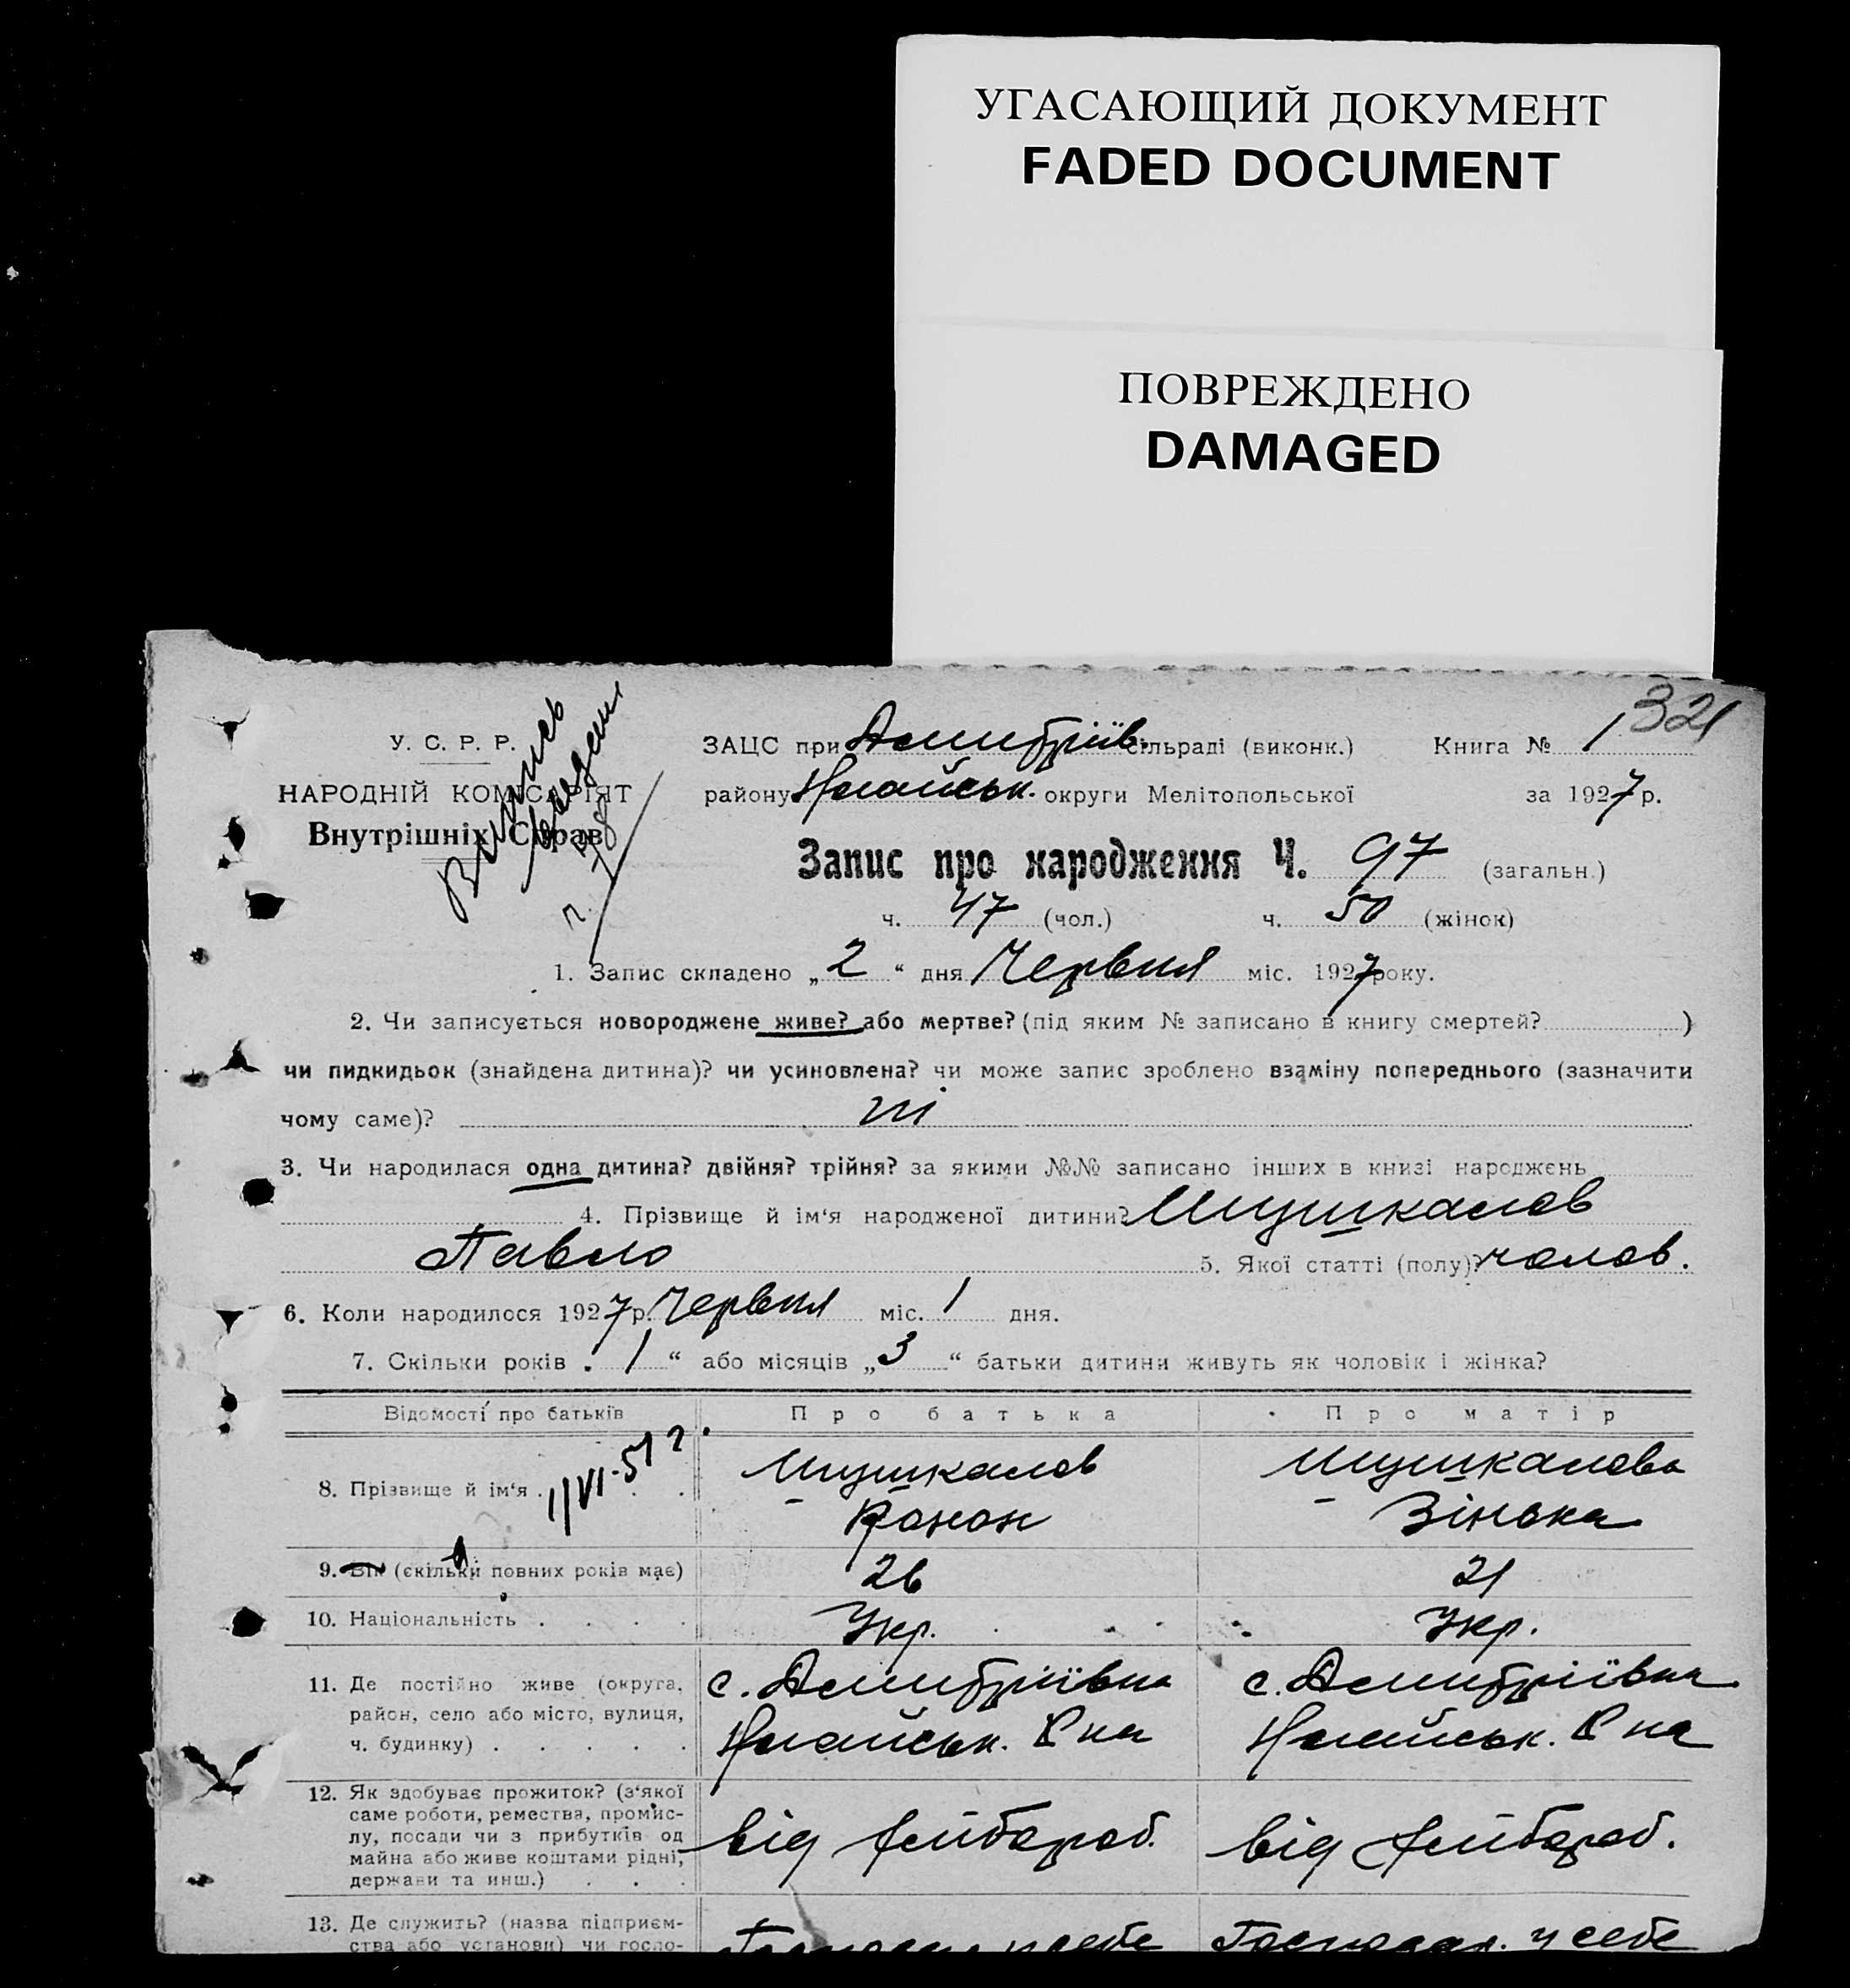 УГАСАЮЩИЙ ДОКУМЕНТ
FADED DOCUMENT
ПОВРЕЖДЕНО
DAMAGED
321
У. С. Р. Р.
НАРОДНІЙ КОМІСАРІЯТ
Внутрішніх Справ
Выпись
ЗАЦС при Дмитріїв. сільраді (виконк.) Книга № 1
району Ногайськ. округи Мелітопольської за 1927 р.
Запис про народження Ч. 97 (загальн.)
ч. 47 (чол.) ч. 50 (жінок)
1. Запис складено „ 2 “ дня Червня міс. 1927 року.
2. Чи записується новороджене живе? або мертве? (під яким № записано в книгу смертей? )
чи пидкидьок (знайдена дитина)? чи усиновлена? чи може запис зроблено взаміну попереднього (зазначити
чому саме)? ні
3. Чи народилася одна дитина? двійня? трійня? за якими №№ записано інших в книзі народжень
4. Прізвище й ім‘я народженої дитини? Шушкалов
Павло 5. Якої статті (полу)? чолов.
6. Коли народилося 1927 р. Червня міс. 1 дня.
7. Скільки років „ 1 “ або місяців „ 3 “ батьки дитини живуть як чоловік і жінка?
Відомості про батьків Про батька Про матір
8. Прізвище й ім‘я . . . Шушкалов Шушкалова
Конон Зінька
1/VI-51 г.
9. Вік (скільки повних років має) 26 21
10. Національність . . . . Укр. Укр.
11. Де постійно живе (округа, с. Дмитріївка с. Дмитріївка
район, село або місто, вулиця,
ч. будинку) . . . . . Ногайськ. Р на Ногайськ. Р на
12. Як здобуває прожиток? (з‘якої
саме роботи, ремества, промис-
лу, посади чи з прибутків од від хлібороб. від хлібороб.
майна або живе коштами рідні,
держави та инш.) . . .
13. Де служить? (назва підприєм- Господар. у себе
ства або установи) чи госпо-